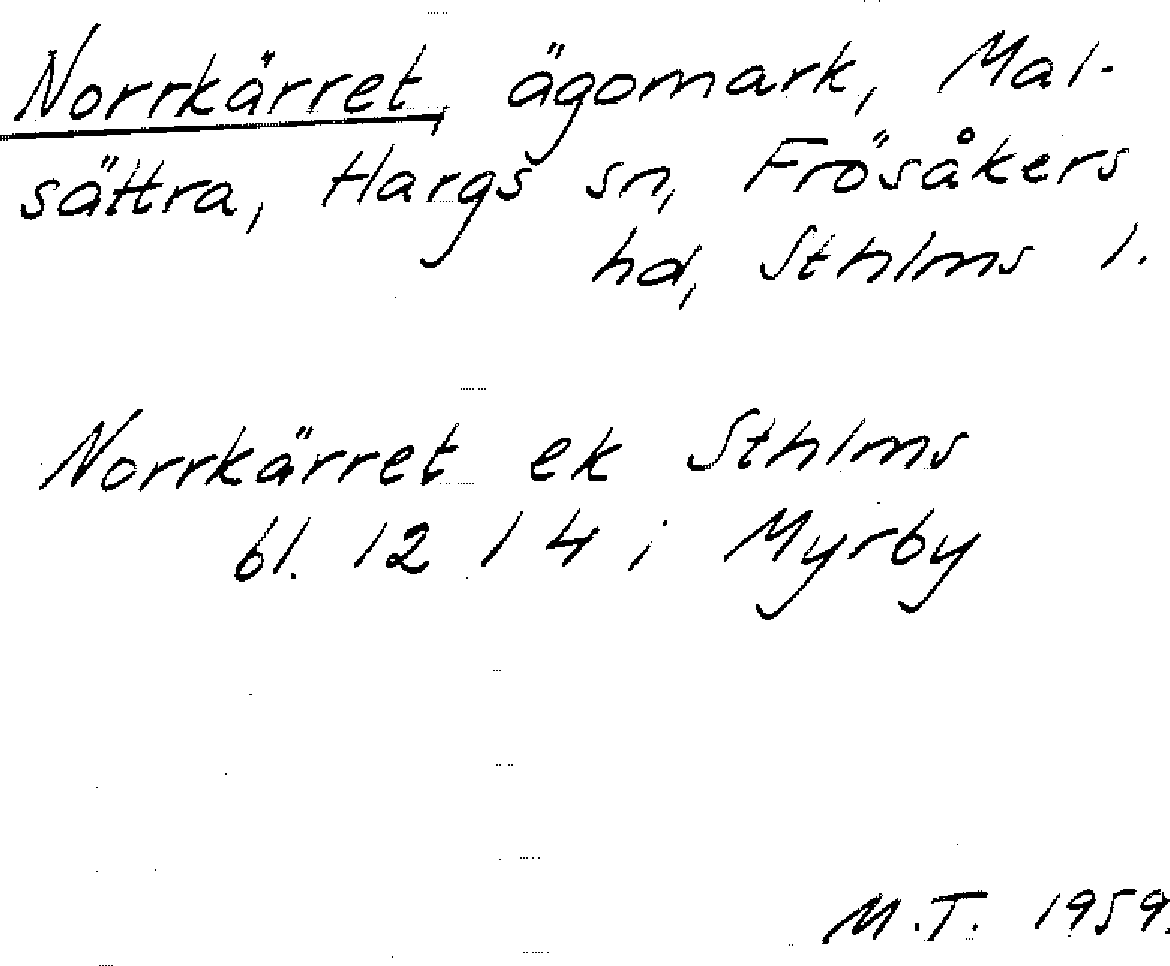 Norrkärret, ägomark, Mal-
sättra, Hargs sn, Frösåkers
hd, Sthlms l.
Norrkärret ek Sthlms
bl. 12 14 i Myrby
M.T. 1959.